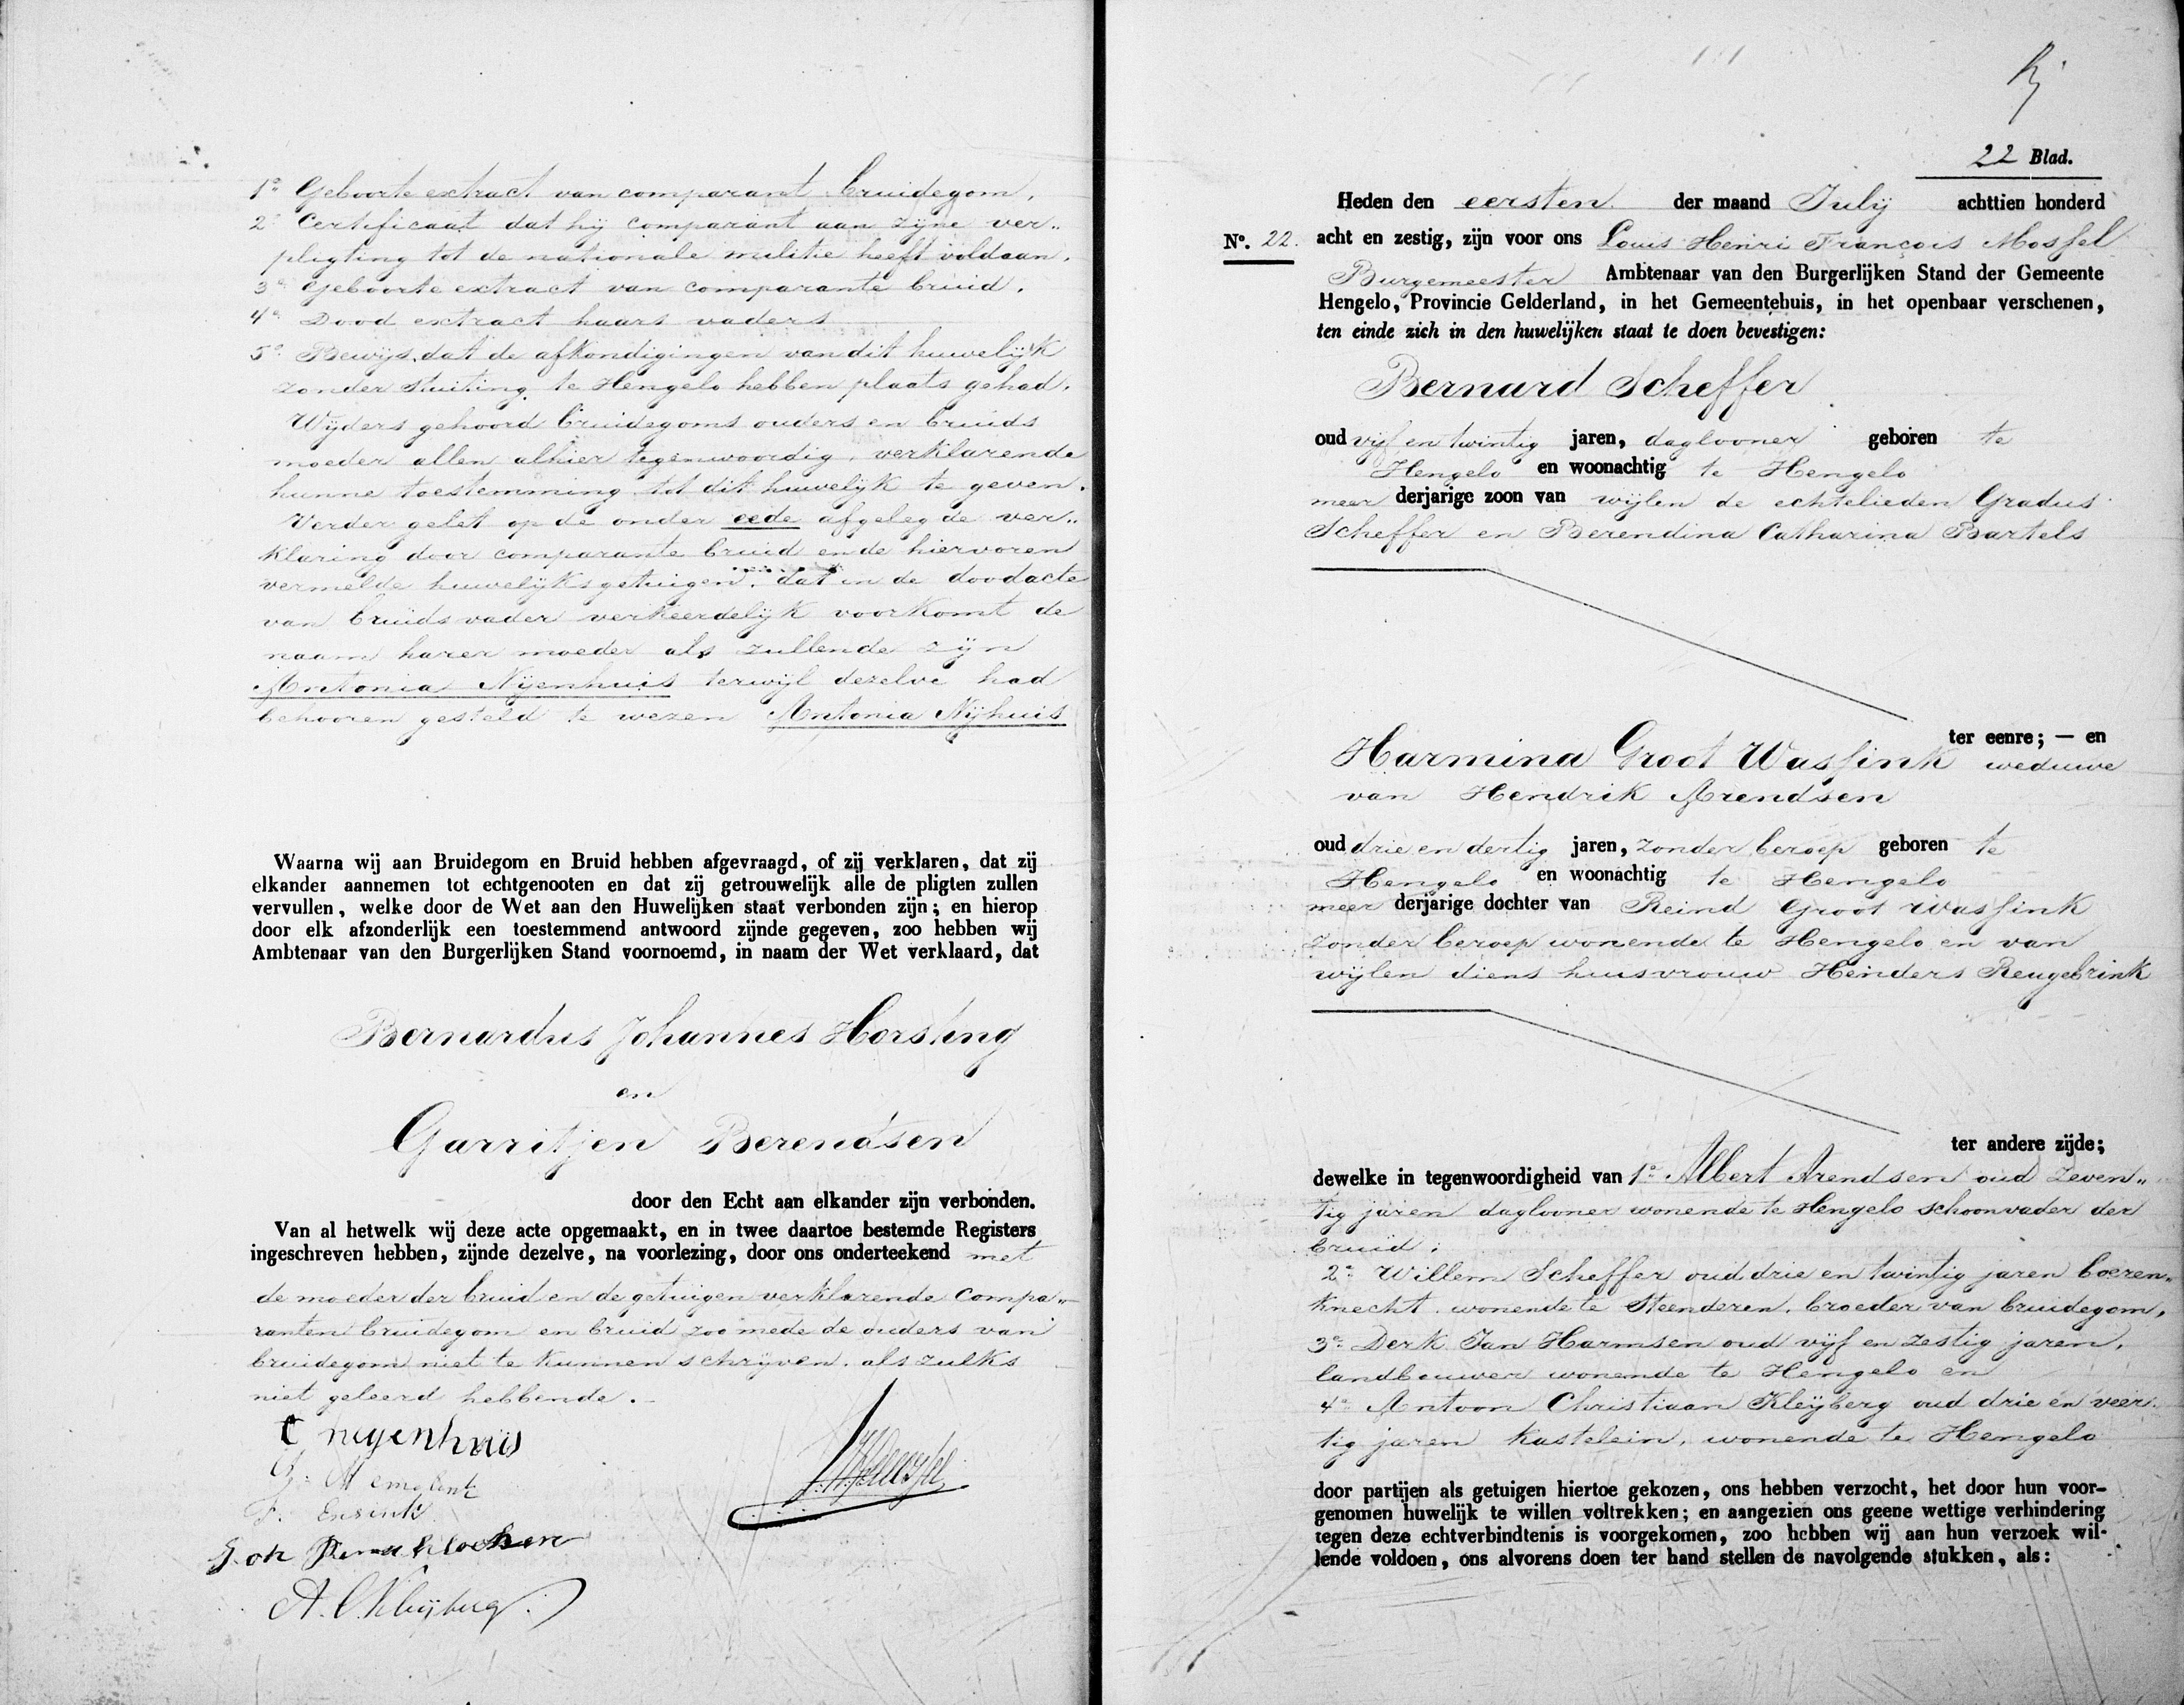 1o Geboorte extract van comparant bruidegom.
2o Certificaat dat hij comparant aan zijne ver„
pligting tot de nationale militie heeft voldaan.
3o Geboorte extract van comparante bruid.
4o Dood extract haars vaders
5o Bewijs, dat de afkondigingen van dit huwelijk
zonder stuiting te Hengelo hebben plaats gehad.
Wijders gehoord bruidegoms ouders en bruids
moeder allen alhier tegenwoordig, verklarende
hunne toestemming tot dit huwelijk te geven.
Verder gelet op de onder eede afgelegde ver„
klaring door comparante bruid en de hiervoren
vermelde huwelijksgetuigen, dat in de doodacte
van bruids vader verkeerdelijk voorkomt de
naam harer moeder als zullende zijn
Antonia Nijenhuis terwijl dezelve had
behooren gesteld te wezen Antonia Nijhuis
Waarna wij aan Bruidegom en Bruid hebben afgevraagd, of zij verklaren, dat zij
elkander aannemen tot echtgenooten en dat zij getrouwelijk alle de pligten zullen
vervullen, welke door de Wet aan den Huwelijken staat verbonden zijn; en hierop
door elk afzonderlijk een toestemmend antwoord zijnde gegeven, zoo hebben wij
Ambtenaar van den Burgerlijken Stand voornoemd, in naam der Wet verklaard, dat
Bernardus Johannes Horsting
en
Garritjen Berendsen
door den Echt aan elkander zijn verbonden.
Van al hetwelk wij deze acte opgemaakt, en in twee daartoe bestemde Registers
ingeschreven hebben, zijnde dezelve, na voorlezing, door ons onderteekend met
de moeder der bruid en de getuigen verklarende Compa„
ranten bruidegom en bruid zoo mede de ouders van
bruidegom niet te kunnen schrijven, als zulks
niet geleerd hebbende.
nijenhuis
F. Ensink
A. C. Kleijberg
22 Blad.
Heden den eersten der maand Julij achttien honderd
No. 22. acht en zestig, zijn voor ons Louis Henri François Mossel
Burgemeester Ambtenaar van den Burgerlijken Stand der Gemeente
Hengelo, Provincie Gelderland, in het Gemeentehuis, in het openbaar verschenen,
ten einde zich in den huwelijken staat te doen bevestigen:
Bernard Scheffer
oud vijf en twintig jaren, daglooner geboren te
Hengelo en woonachtig te Hengelo
meer derjarige zoon van wijlen de echtelieden Gradus
Scheffer en Berendina Catharina Bartels
ter eenre; — en
Harmina Groot Wassink weduwe
van Hendrik Arendsen
oud drie en dertig jaren, zonder beroep geboren te
Hengelo en woonachtig te Hengelo
meer derjarige dochter van Reind Groot Wassink
zonder beroep wonende te Hengelo en van
wijlen diens huisvrouw Henders Reugebrink
ter andere zijde;
dewelke in tegenwoordigheid van 1o Albert Arendsen oud zeven„
tig jaren daglooner wonende te Hengelo schoonvader der
bruid;
2o Willem Scheffer oud drie en twintig jaren boeren„
knecht wonende te Steenderen, broeder van bruidegom,
3o Derk Jan Harmsen oud vijf en zestig jaren,
landbouwer wonende te Hengelo en
4o Antoon Christiaan Kleijberg oud drie en veer„
tig jaren kastelein, wonende te Hengelo
door partijen als getuigen hiertoe gekozen, ons hebben verzocht, het door hun voor-
genomen huwelijk te willen voltrekken; en aangezien ons geene wettige verhindering
tegen deze echtverbindtenis is voorgekomen, zoo hebben wij aan hun verzoek wil-
lende voldoen, ons alvorens doen ter hand stellen de navolgende stukken, als: